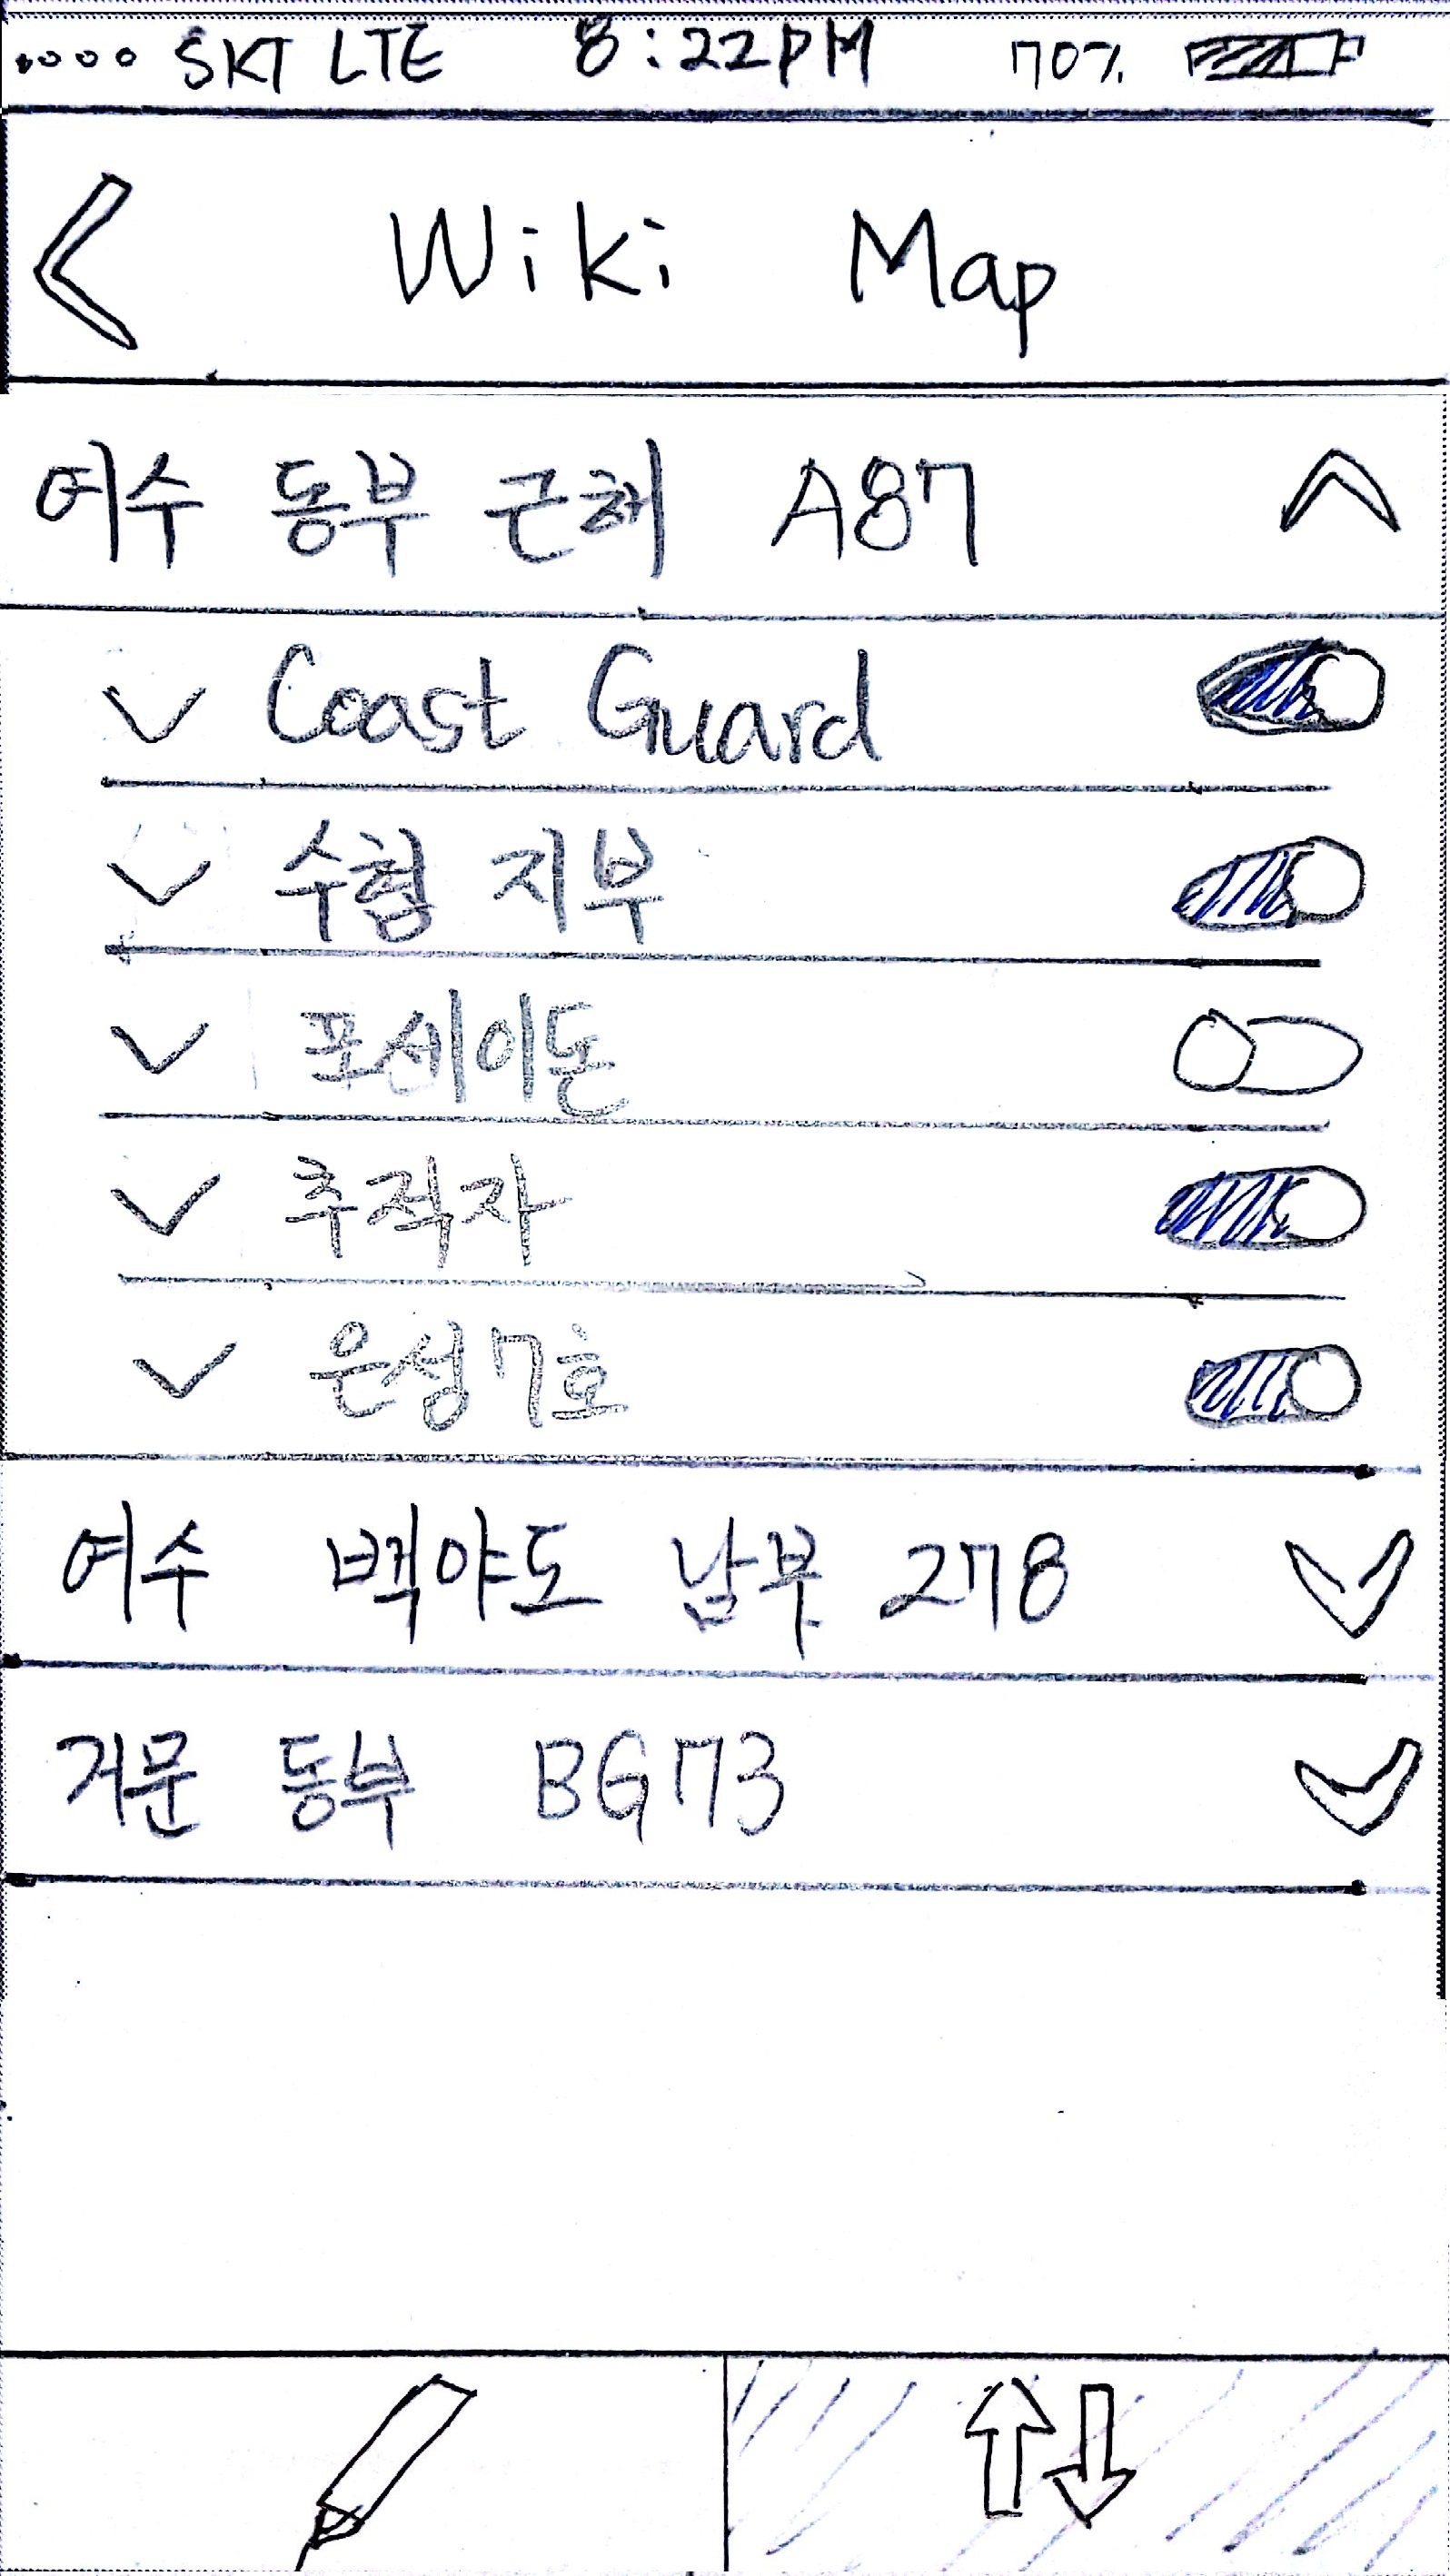 SKT LTE 8:22PM 70%
Wiki Map
여수 동부 근해 A87
Coast Guard
수협 지부
포세이돈
추적자
은성7호
여수 백야도 남부 278
거문 동부 BG73